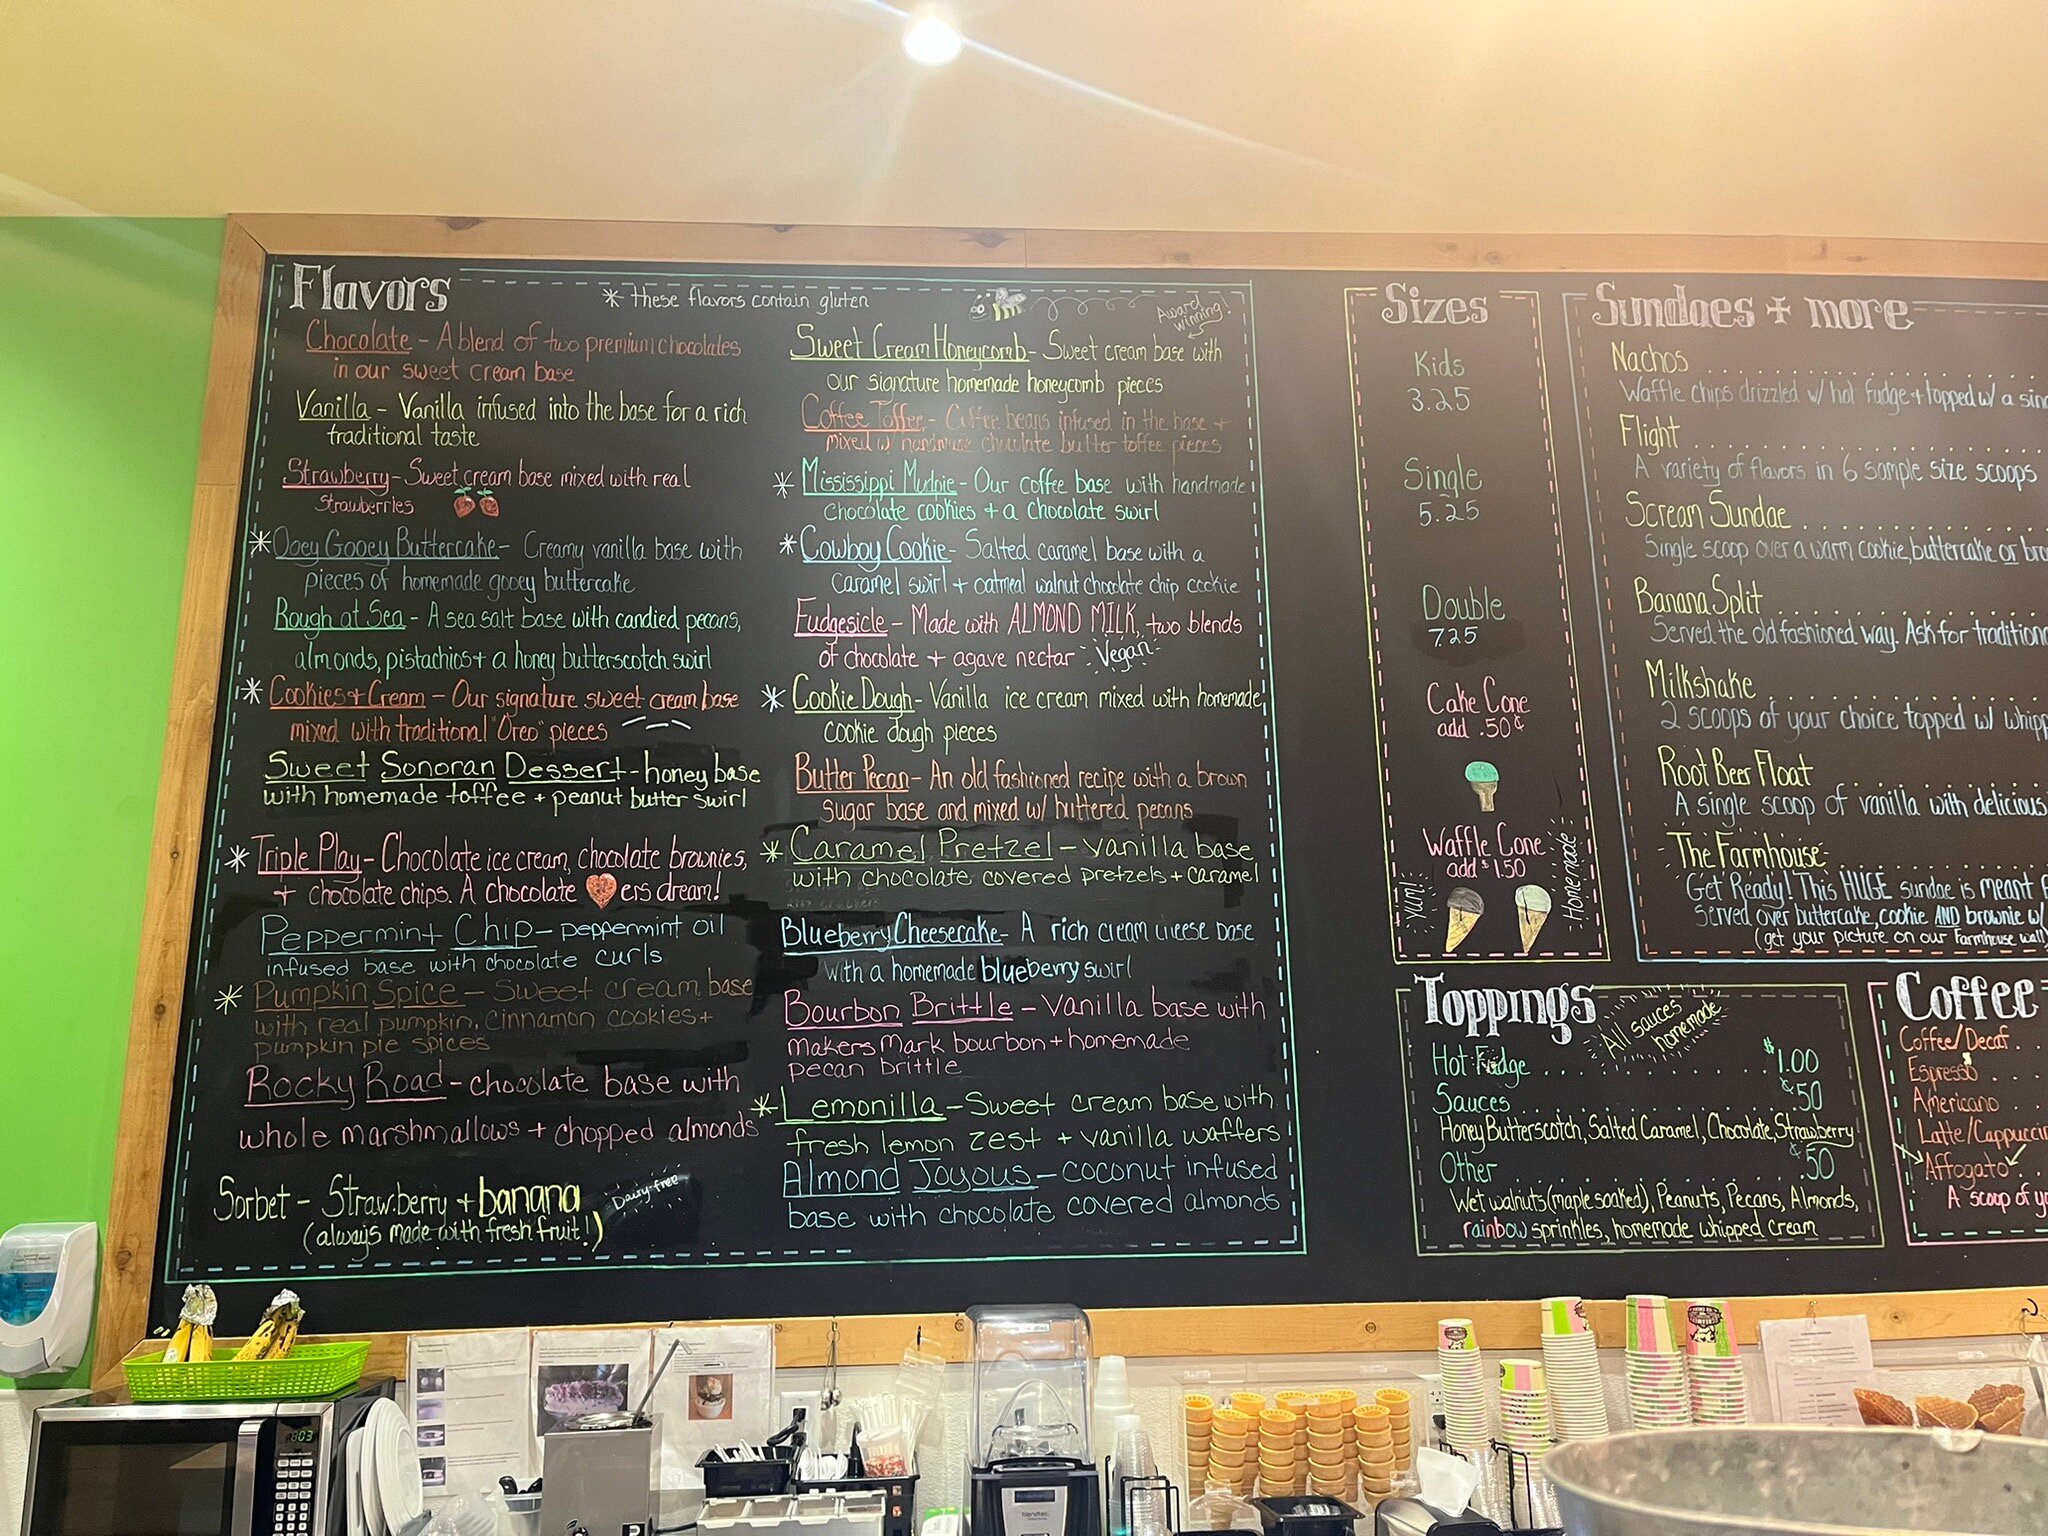 Flavors
* these flavors contain gluten
Chocolate - A blend of two premium chocolates
in our sweet cream base
Vanilla - Vanilla infused into the base for a rich
traditional taste
Strawberry - Sweet cream base mixed with real
Strawberries
* Ooey Gooey Buttercake - Creamy vanilla base with
pieces of homemade gooey buttercake
Rough at Sea - A sea salt base with candied pecans,
almonds, pistachios + a honey butterscotch swirl
* Cookies + Cream - Our signature sweet cream base
mixed with traditional "Oreo" pieces
Sweet Sonoran Dessert - honey base
with homemade toffee + peanut butter swirl
* Triple Play - Chocolate ice cream, chocolate brownies,
+ chocolate chips. A chocolate ers dream!
Peppermint Chip - peppermint oil
infused base with chocolate curls
* Pumpkin Spice - Sweet cream base
with real pumpkin, cinnamon cookies +
pumpkin pie spices
Rocky Road - chocolate base with
whole marshmallows + chopped almonds
Sorbet - Strawberry + banana
(always made with fresh fruit!)
Dairy-free
Award
winning!
Sweet Cream Honeycomb - Sweet cream base with
our signature homemade honeycomb pieces
Coffee Toffee - Coffee beans infused in the base +
mixed w/ handmade chocolate butter toffee pieces
* Mississippi Mudpie - Our coffee base with handmade
chocolate cookies + a chocolate swirl
* Cowboy Cookie - Salted caramel base with a
caramel swirl + oatmeal walnut chocolate chip cookie
Fudgesicle - Made with ALMOND MILK, two blends
of chocolate + agave nectar Vegan
* Cookie Dough - Vanilla ice cream mixed with homemade
cookie dough pieces
Butter Pecan - An old fashioned recipe with a brown
sugar base and mixed w/ buttered pecans
* Caramel Pretzel - vanilla base
with chocolate covered pretzels + caramel
Blueberry Cheesecake - A rich cream cheese base
with a homemade blueberry swirl
Bourbon Brittle - Vanilla base with
makers mark bourbon + homemade
pecan brittle
* Lemonilla - Sweet cream base with
fresh lemon zest + vanilla waffers
Almond Joyous - coconut infused
base with chocolate covered almonds
Sizes
Kids
3.25
Single
5.25
Double
7.25
Cake Cone
add .50¢
Waffle Cone
add $1.50
Yum!
Homemade
Sundaes + more
Nachos
Waffle chips drizzled w/ hot fudge + topped w/ a
Flight
A variety of flavors in 6 sample size scoops
Scream Sundae
Single scoop over a warm cookie, buttercake or
Banana Split
Served the old fashioned way. Ask for
Milkshake
2 scoops of your choice topped w/
Root Beer Float
A single scoop of vanilla with delicious
The Farmhouse
Get Ready! This HUGE sundae is meant
served over buttercake, cookie AND brownie w/
(get your picture on our Farmhouse wall)
Toppings
All sauces
homemade
Hot Fudge $1.00
Sauces ¢50
Honey Butterscotch, Salted Caramel, Chocolate, Strawberry
Other ¢50
Wet walnuts (maple soaked), Peanuts, Pecans, Almonds,
rainbow sprinkles, homemade whipped cream
Coffee
Coffee/Decaf
Espresso
Americano
Latte/
Affogato
A scoop of